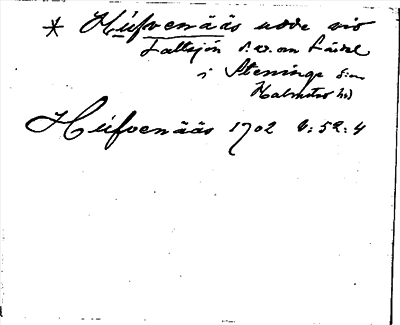 * Hufvenääs udde vid
Taltsjön s.v. om Lädel
i Steninge sn
Halmstad hd
Hufvenääs 1702 6:52:4